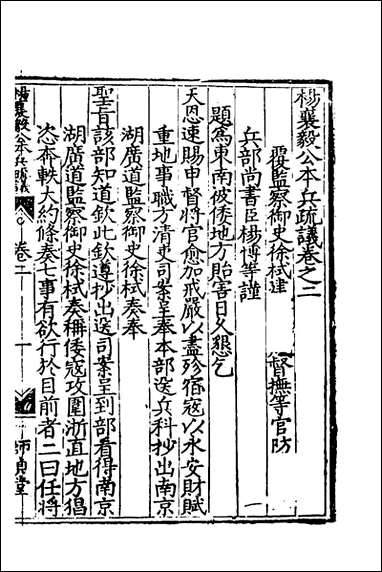 楊襄毅公本兵疏議卷之二
覆監察御史徐栻建
督撫等官防
兵部尚書臣楊博等謹
題為東南被倭地方貽害日久懇乞
天恩速賜申督將官愈加戒嚴以盡殄宿寇以永安財賦
重地事職方清吏司案呈奉本部送兵科抄出南京
湖廣道監察御史徐栻奏奉
聖旨該部知道欽此欽遵抄出送司案呈到部看得南京
湖廣道監察御史徐栻奏稱倭寇攻圍浙直地方猖
恣奔軼大約條奏七事有欲行於目前者二曰任將
楊襄毅公本兵疏議
卷二
一
師貞堂